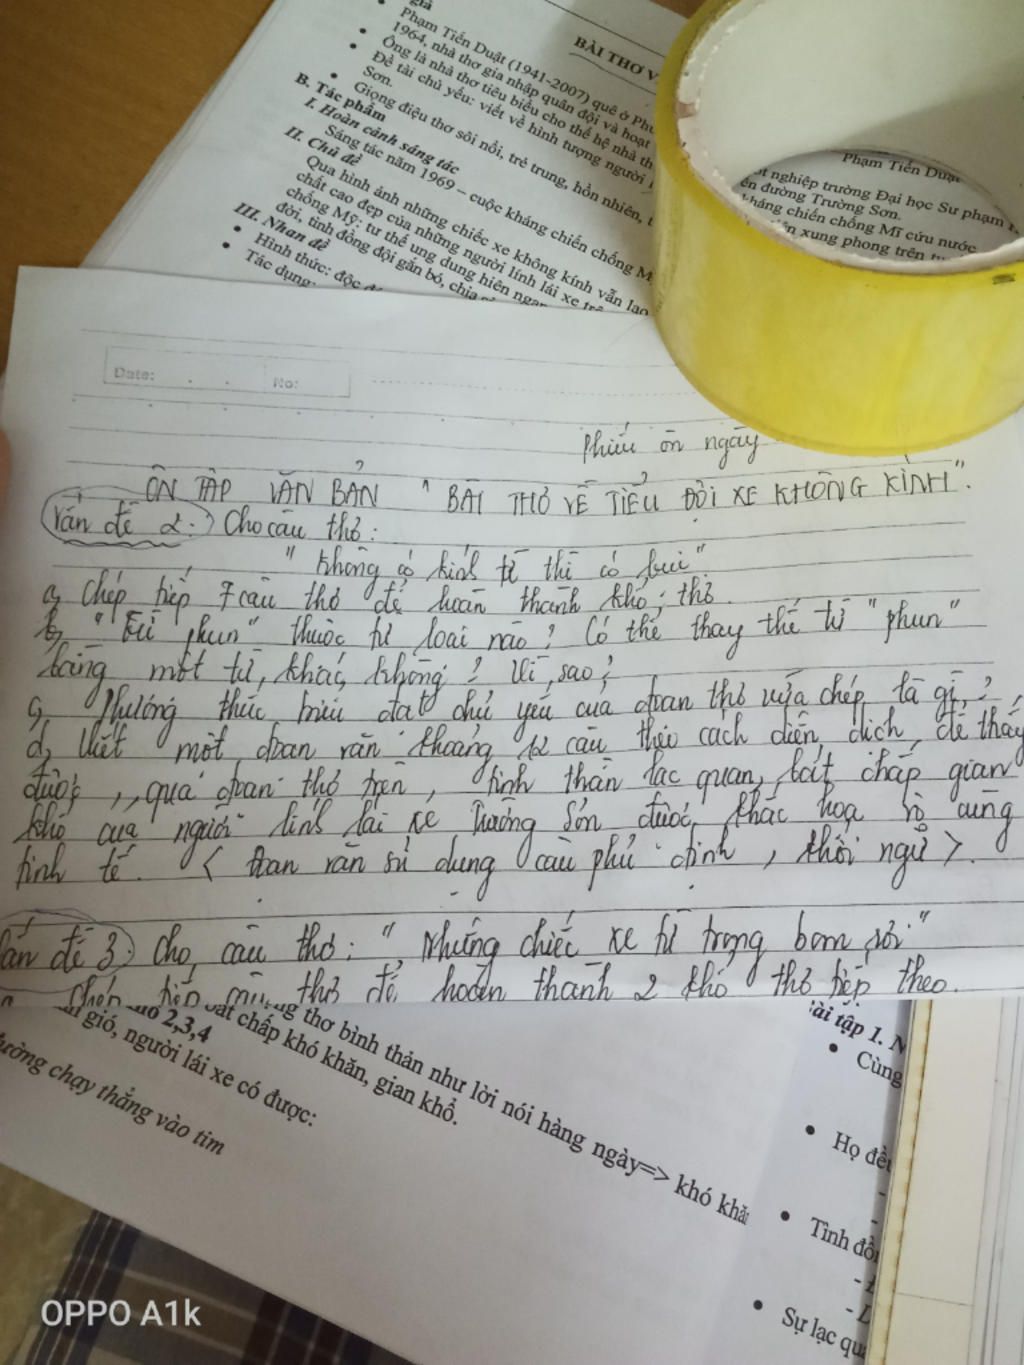 giả
Phạm Tiến Duật (1941-2007) quê ở Phú
1964, nhà thơ gia nhập quân đội và hoạt
Ông là nhà thơ tiêu biểu cho thế hệ nhà th
Đề tài chủ yếu: viết về hình tượng người
Sơn.
Giọng điệu thơ sôi nổi, trẻ trung, hồn nhiên, t
B. Tác phẩm
I. Hoàn cảnh sáng tác
Sáng tác năm 1969 – cuộc kháng chiến chống M
II. Chủ đề
Qua hình ảnh những chiếc xe không kính vẫn lao
chất cao đẹp của những người lính lái xe trê
chống Mỹ: tư thế ung dung hiên ngan
đời, tình đồng đội gắn bó, chia
III. Nhan đề
Hình thức: độc
Tác dụng:
BÀI THƠ V
Phạm Tiến Duật
ốt nghiệp trường Đại học Sư phạm
ên đường Trường Sơn.
kháng chiến chống Mĩ cứu nước
xung phong trên
Date: No:
Phiếu ôn ngày
ÔN TẬP VĂN BẢN " BÀI THƠ VỀ TIỂU ĐỘI XE KHÔNG KÍNH".
Vấn đề 2: Cho câu thơ:
" Không có kính ừ thì có bụi"
a, Chép tiếp 7 câu thơ để hoàn thành khổ thơ.
b, "Từ phun" thuộc từ loại nào? Có thể thay thế từ "phun"
bằng một từ khác không? Vì sao?
c, Phương thức biểu đạt chủ yếu của đoạn thơ vừa chép là gì?
d, Viết một đoạn văn khoảng 12 câu theo cách diễn dịch, để thấy
được, qua đoạn thơ trên, tinh thần lạc quan, bất chấp gian
khổ của người lính lái xe Trường Sơn được khắc họa rõ cùng
tinh tế. < Đoạn văn sử dụng câu phủ định, khởi ngữ >.
ấn đề 3: Cho câu thơ: " Những chiếc xe từ trong bom rơi"
Chép tiếp thơ để hoàn thành 2 khổ thơ tiếp theo.
2,3,4
gió, người lái xe có được:
đường chạy thẳng vào tim
thơ bình thản như lời nói hàng ngày=> khó khă
bất chấp khó khăn, gian khổ.
ài tập 1. N
Cùng
Họ đều
Tình đồ
Sự lạc qu
OPPO A1k